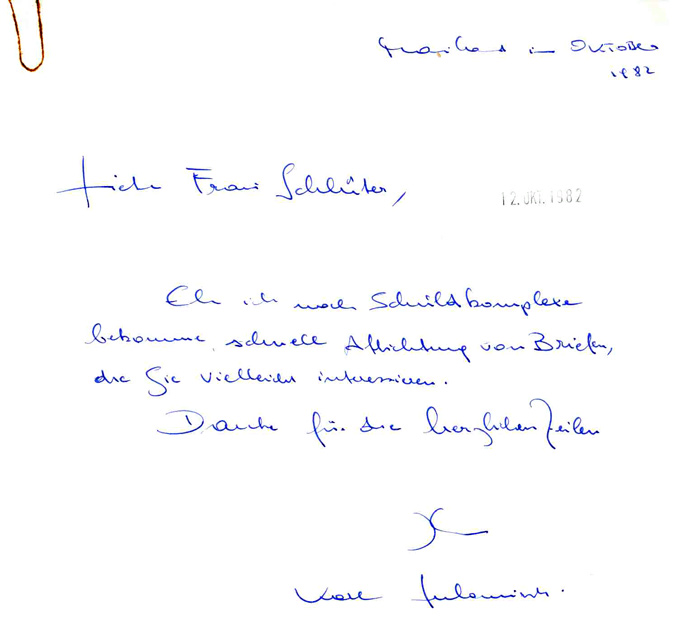 im OKTOBER
1982
Liebe Frau Schlüter,
12. OKT. 1982
Ehe ich noch Schuldkomplexe
bekomme, schnell Ablichtung von Briefen,
die Sie vielleicht interessieren.
Danke für die herzlichen Zeilen